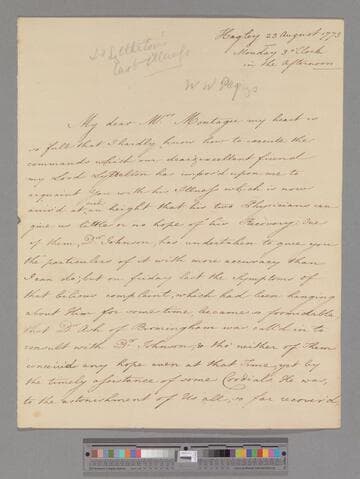 Hagley 23 August 1773
Monday 3 o'Clock
in the Afternoon
Ld Lyttelton's
last Illness
W W Pepys
My dear Mrs Montagu my heart is
so full that I hardly know how to execute the
commands which our dear excellent friend
my Lord Lyttelton has impos'd upon me to
acquaint You with his Illness which is now
arriv'd at such an height that his two Physicians can
give us little or no hope of his Recovery. One
of them, Dr Johnson, has undertaken to give you
the particulars of it with more accuracy than
I can do; but on friday last the Symptoms of
that bilious complaint, which had been hanging
about Him for some time, became so formidable,
that Dr Ash of Birmingham was call'd in to
consult with Dr Johnson, & tho' neither of Them
conceiv'd any hope even at that Time, yet by
the timely assistance of some Cordials He was,
to the astonishment of Us all, so far recover'd